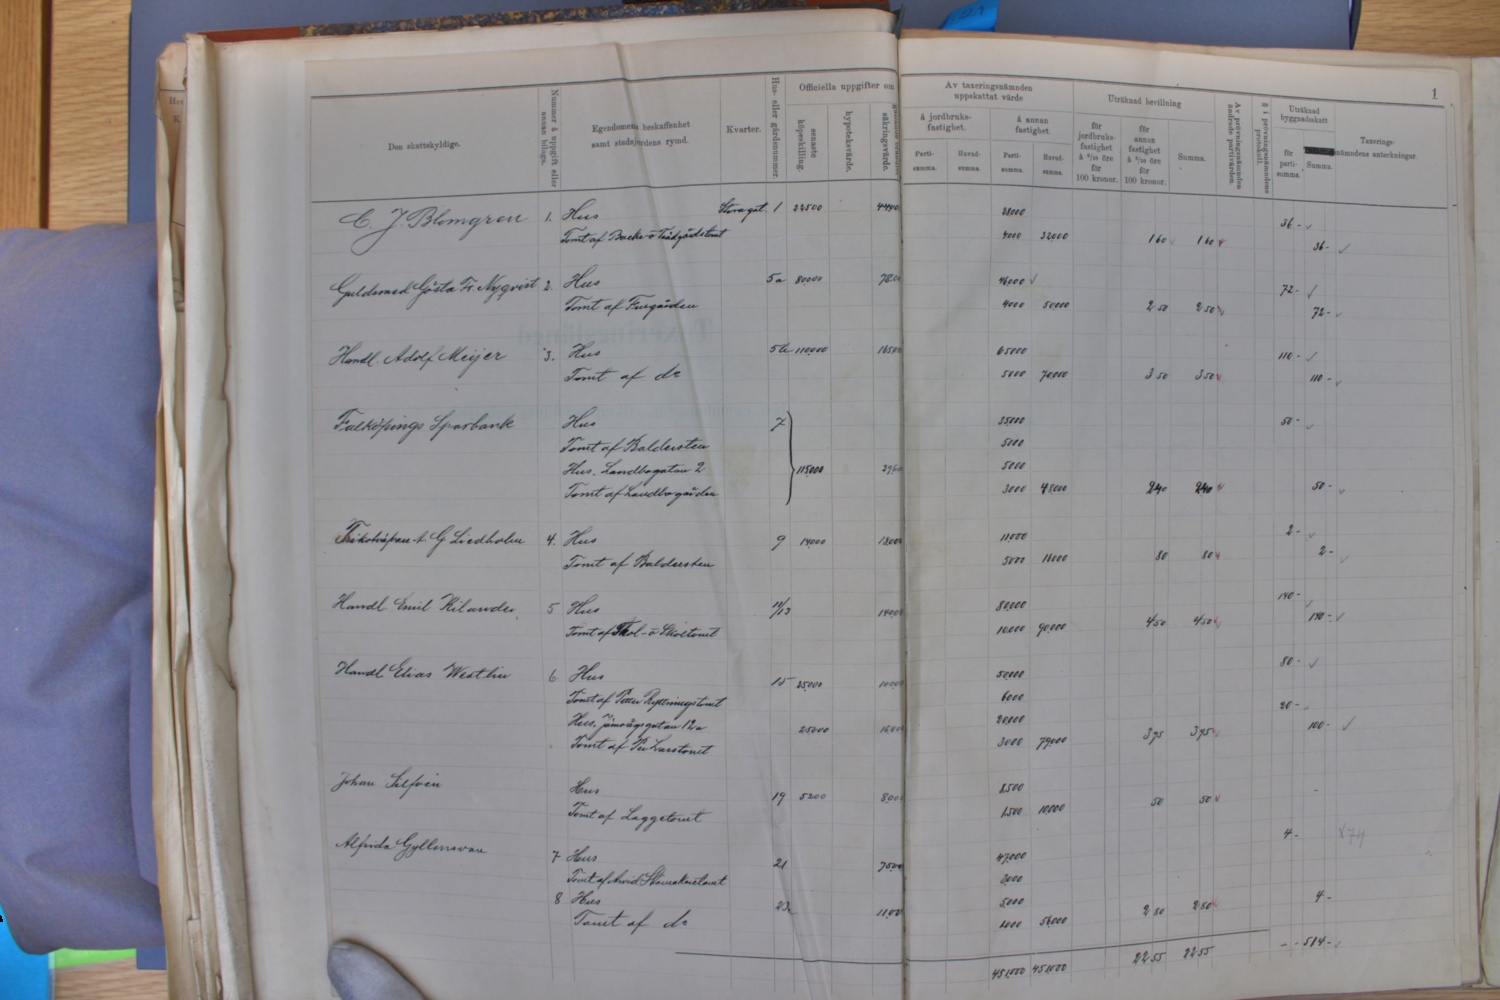 1
Den skattskyldige.
Nummer å uppgift eller annan bilaga.
Egendomens beskaffenhet samt stadsjordens rymd.
Kvarter.
Hus- eller gårdsnummer.
Officiella uppgifter om
senaste köpeskilling.
hypoteksvärde.
Av taxeringsnämnden uppskattat värde
å jordbruks-fastighet.
å annan fastighet.
Parti-summa.
Huvud-summa.
Parti-summa.
Huvud-summa.
Uträknad bevillning
för jordbruks-fastighet å 6/10 öre för 100 kronor.
för annan fastighet å 5/10 öre för 100 kronor.
Summa.
Av prövningsnämnden ändrade partivärden.
§ i prövningsnämndens protokoll.
Uträknad byggnadsskatt
för parti-summa.
Summa.
Taxerings-nämndens anteckningar.
C. J. Blomgren 1. Hus Storagat. 1 22500 28000 36-
Tomt af Backe- o Trädgårdstomt 4000 32000 160 160 36-
Guldsmed Gösta Fr. Nyqvist 2. Hus 5a 80000 46000 72-
Tomt af Furgården 4000 50000 2 50 2 50 72-
Handl. Adolf Meijer 3. Hus 5b 110000 65000 110-
Tomt af do 5000 70000 3 50 3 50 110-
Falköpings Sparbank Hus 7 35000 50-
Tomt af Baldersten 5000
Hus. Landbogatan 2 115000 5000
Tomt af Landbogården 3000 48000 240 240 50-
G Liedholm 4. Hus 9 14000 11000 2-
Tomt af Baldersten 5000 16000 80 80 2-
Handl Emil Kilander 5 Hus 11/13 80000 140-
10000 90000 4 50 4 50 140-
Handl Elias Westlin 6 Hus 15 25000 50000 80-
Tomt af Petter Ryttmingstomt 6000
Hus, Järnvägsgatan 12a 25000 20000 20-
Tomt af Per Larstomt 3000 79000 3 95 3 95 100-
Johan Silfvén Hus 19 5200 8500
Tomt af Laggetomt 1500 10000 50 50
Alfrida Gyllensvan 7 Hus 21 47000 4-
Tomt af Arvid 2000
8 Hus 23 5000 4-
Tomt af do 2000 56000 2 80 2 80
451000 451000 22 55 22 55 514-